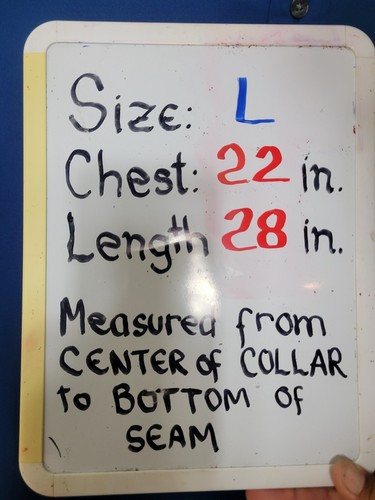 Size: L
Chest: 22 in.
Length 28 in.
Measured from
CENTER of COLLAR
to BOTTOM of
SEAM